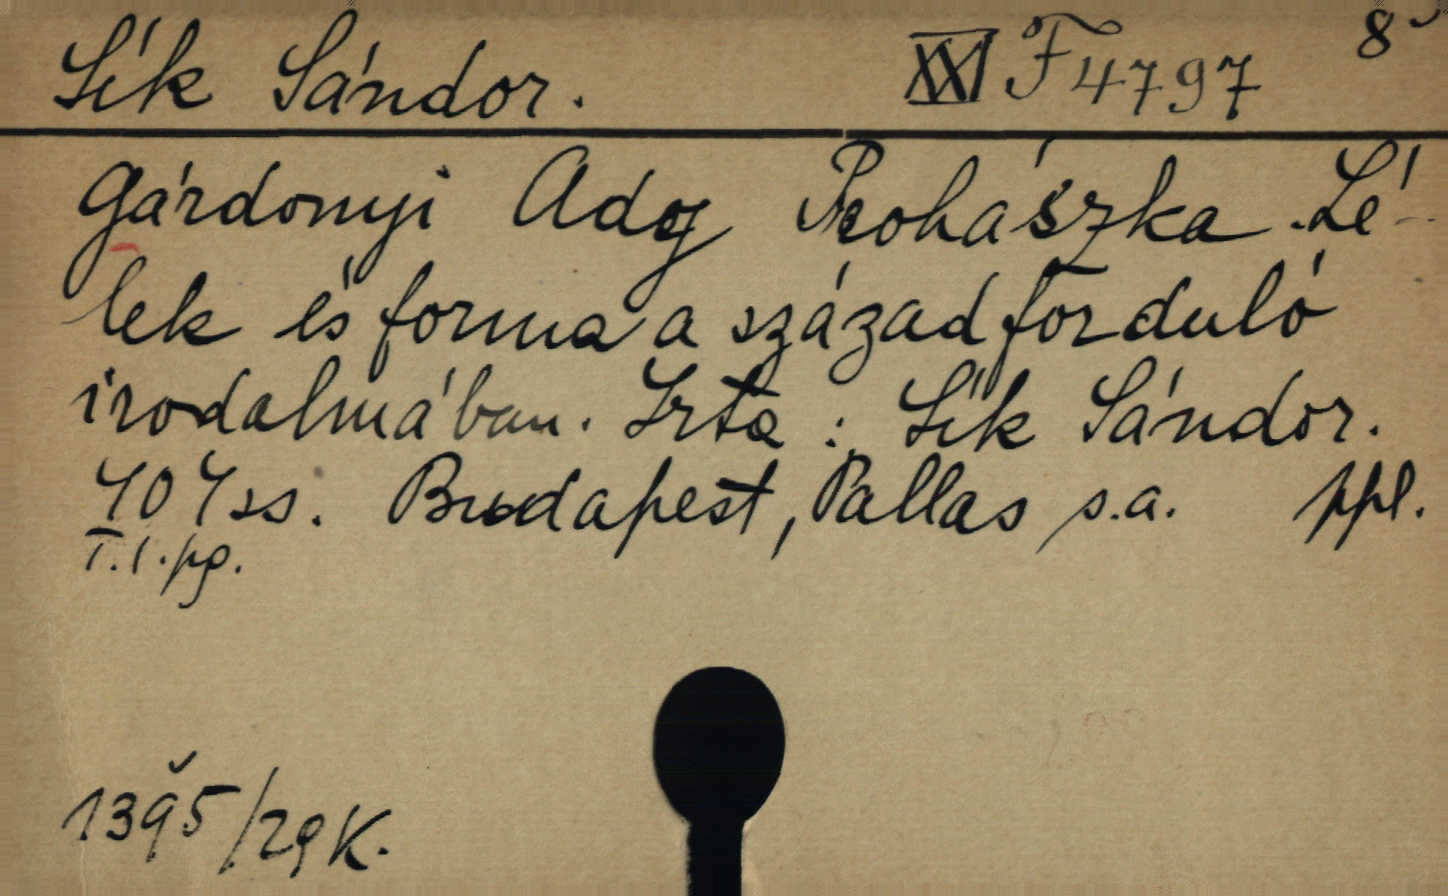 Sík Sándor. XXI F 4797 8°
Gárdonyi Ady Prohászka. Lé-
lek és forma a századforduló
irodalmában. Irta: Sík Sándor.
404 ss. Budapest, Pallas s.a. ppl.
T.1.pg.
1395/29 K.